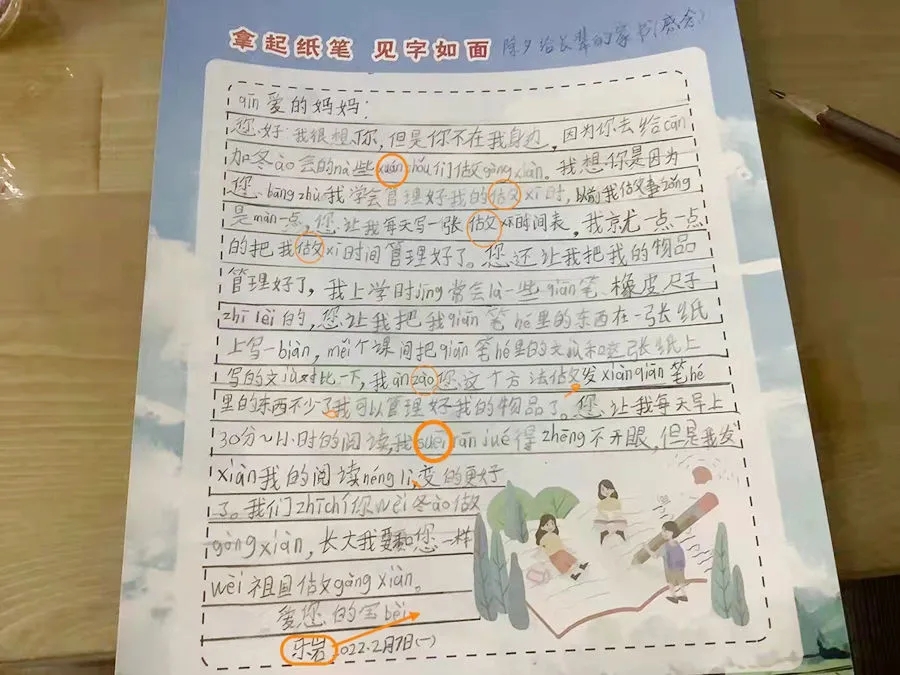 拿起纸笔 见字如面
除夕给长辈的家书(感念)
qīn爱的妈妈:
您好:我很想你,但是你不在我身边,因为你去给cān
加冬ào会的nà些xuán shǒu们做gòng xiàn。我想你是因为
您bāng zhù我学会管理好我的做xī时,以前我做事zǒng
是màn一点,您让我每天写一张做xī时间表,我就一点一点
的把我做xī时间管理好了。您还让我把我的物品
管理好了,我上学时jīng常会là一些qiān笔、橡皮尺子
zhī lèi的,您让我把我qiān笔hé里的东西在一张纸
上写一biàn,měi个课间把qiān笔hé里的文jù和这张纸上
写的文jù对比一下,我àn zào您这个方法做发xiàn qiān笔hé
里的东西不少了我可以管理好我的物品了。您让我每天早上
30分~1小时的阅读,我suēi rán jué得zhēng不开眼,但是我发
xiàn我的阅读néng lì,变的更好
了。我们zhī chí你wèi冬ào做
gòng xiàn,长大我要和您一样
wèi祖国做gòng xiàn。
爱您的宝bèi
乐岩 2022.2月7日(一)